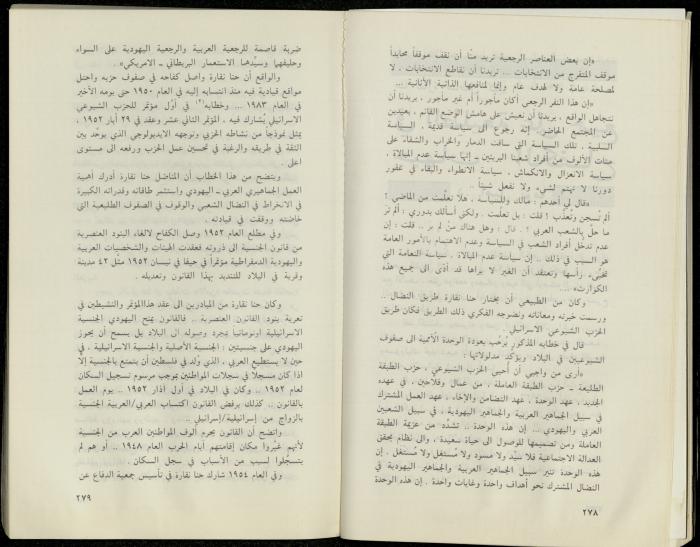 «إن بعض العناصر الرجعية تريد منّا أن نقف موقفاً محايداً
موقف المتفرج من الانتخابات ... تريدنا أن نقاطع الانتخابات ، لا
لمصلحة عامة ولا لهدف عام وإنما لمنافعها الذاتية الأنانية ...
«إن هذا النفر الرجعي أكان مأجوراً أم غير مأجور ، يريدنا أن
نتجاهل الواقع ، يريدنا أن نعيش على هامش الوضع القائم ، بعيدين
عن المجتمع الحاضر. إنه رجوع الى سياسة قديمة ، السياسة
السلبية . تلك السياسة التي ساقت الدمار والخراب والشقاء على
مئات الألوف من أفراد شعبنا البريئين – إنها سياسة عدم المبالاة ،
سياسة الانعزال والانكماش ، سياسة الانطواء والبقاء في عقور
دورنا لا نهتم لشيء ولا نفعل شيئاً ..
«قال لي أحدهم : مالك وللسياسة ، هلاّ تعلّمت من الماضي ؟
ألم تُسجن وتُعذّب ؟ قلت : بل تعلّمت . ولكني أسألك بدوري : ألم تر
ما حلّ بالشعب العربي ؟ . قال : وهل هناك مَنْ لم ير .. قلت : إن
عدم تدخل أفراد الشعب في السياسة وعدم الاهتمام بالأمور العامة
هو السبب في ذلك .. إن سياسة عدم المبالاة . سياسة النعامة التي
تخبّىء رأسها وتعتقد أن الغير لا يراها قد أدّى الى جميع هذه
الكوارث»....
وكان من الطبيعي أن يختار حنا نقارة طريق النضال ..
ورسمت خبرته ومعاناته ونضوجه الفكري ذلك الطريق فكان طريق
الحزب الشيوعي الاسرائيلي .
قال في خطابه المذكور يُرحّب بعودة الوحدة الأممية الى صفوف
الشيوعيين في البلاد ويؤكد مدلولاتها :
«أرى من واجبي أن أحيي الحزب الشيوعي ، حزب الطبقة
الطليعة – حزب الطبقة العاملة ، من عمال وفلاحين ، في عهده
الجديد ، عهد الوحدة ، عهد التضامن والإخاء ، عهد العمل المشترك
في سبيل الجماهير العربية والجماهير اليهودية ، في سبيل الشعبين
العربي واليهودي ... إن هذه الوحدة .. تشدّد من عزيمة الطبقة
العاملة ومن تصميمها للوصول الى حياة سعيدة ، والى نظام يحقق
العدالة الاجتماعية فلا سيّد ولا مسود ولا مُستغِل ولا مُستغَل . إن
هذه الوحدة تنير سبيل الجماهير العربية والجماهير اليهودية في
النضال المشترك نحو أهداف واحدة وغايات واحدة . إن هذه الوحدة
٢٧٨
ضربة قاصمة للرجعية العربية والرجعية اليهودية على السواء
وحليفهما وسيّدهما الاستعمار البريطاني – الاميركي» .
والواقع أن حنا نقارة واصل كفاحه في صفوف حزبه واحتل
مواقع قيادية فيه منذ انتسابه إليه في العام ١٩٥٠ حتى يومه الأخير
في العام ١٩٨٣ ... وخطابه(٢) في أوّل مؤتمر للحزب الشيوعي
الاسرائيلي يُشارك فيه ، المؤتمر الثاني عشر وعقد في ٢٩ أيار ١٩٥٢ ،
يمثل نموذجاً من نشاطه الحزبي وتوجهه الايديولوجي الذي يوحّد بين
الثقة في طريقه والرغبة في تحسين عمل الحزب ورفعه الى مستوى
اعلى .
ويتضح من هذا الخطاب أن المناضل حنا نقارة أدرك أهمية
العمل الجماهيري العربي – اليهودي واستثمر طاقاته وقدراته الكبيرة
في الانخراط في النضال الشعبي والوقوف في الصفوف الطليعية التي
خاضته ووقفت في قيادته .
وفي مطلع العام ١٩٥٢ وصل الكفاح لالغاء البنود العنصرية
من قانون الجنسية الى ذروته فعقدت الهيئات والشخصيات العربية
واليهودية الدمقراطية مؤتمراً في حيفا في نيسان ١٩٥٢ مثّل ٤٢ مدينة
وقرية في البلاد للتنديد بهذا القانون وتعديله .
وكان حنا نقارة من المبادرين الى عقد هذا المؤتمر والنشيطين في
تعرية بنود القانون العنصرية .. فالقانون يمنح اليهودي الجنسية
الاسرائيلية اوتوماتياً بمجرد وصوله الى البلاد بل يسمح أن يحوز
اليهودي على جنسيتين : الجنسية الأصلية والجنسية الاسرائيلية ، في
حين لا يستطيع العربي ، الذي وُلد في فلسطين أن يتمتع بالجنسية إلا
اذا كان مسجلاً في سجلات المواطنين بموجب مرسوم تسجيل السكان
لعام ١٩٥٢ .. وكان في البلاد في أول أذار ١٩٥٢ .. يوم العمل
بالقانون .. كذلك يرفض القانون اكتساب العربي/العربية الجنسية
بالزواج من إسرائيلية/إسرائيلي ..
واتضح أن القانون يحرم ألوف المواطنين العرب من الجنسية
لأنهم غيّروا مكان إقامتهم أيام الحرب العام ١٩٤٨ .. أو هم لم
يتسجلّوا لسبب من الأسباب في سجل السكان .
وفي العام ١٩٥٤ شارك حنا نقارة في تأسيس جمعية الدفاع عن
٢٧٩